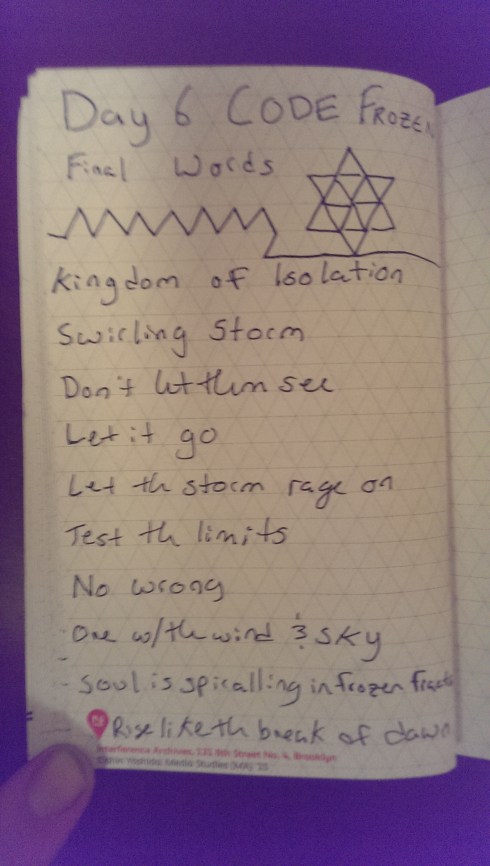 Day 6 CODE FROZEN
Final Words
Kingdom of Isolation
Swirling Storm
Don't let them see
Let it go
Let th storm rage on
Test th limits
No wrong
One w/th wind & sky
- Soul is spiralling in frozen fracts
Rise like th break of dawn
Interference Archives, 131 8th Street No. 4, Brooklyn
Media Studies